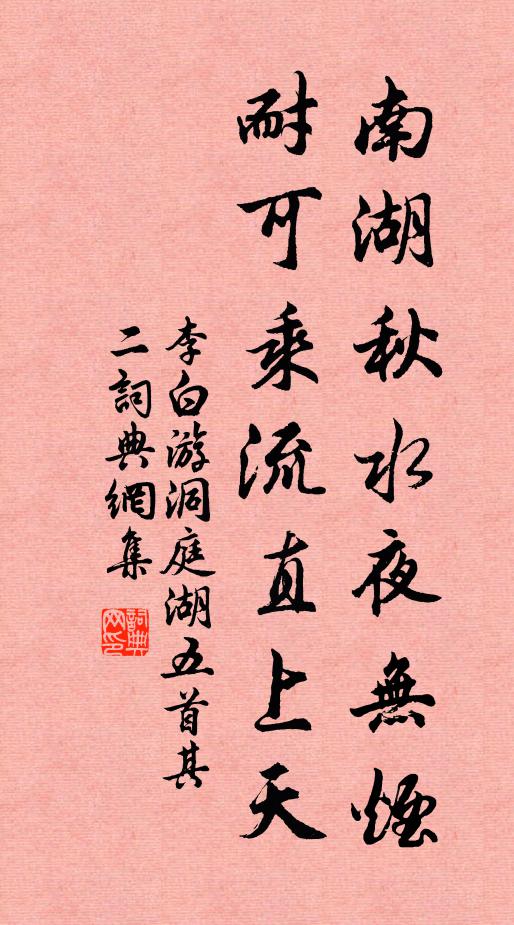 南湖秋水夜無煙
耐可乘流直上天
李白游洞庭湖五首其
二詞典網集
詞典
网印